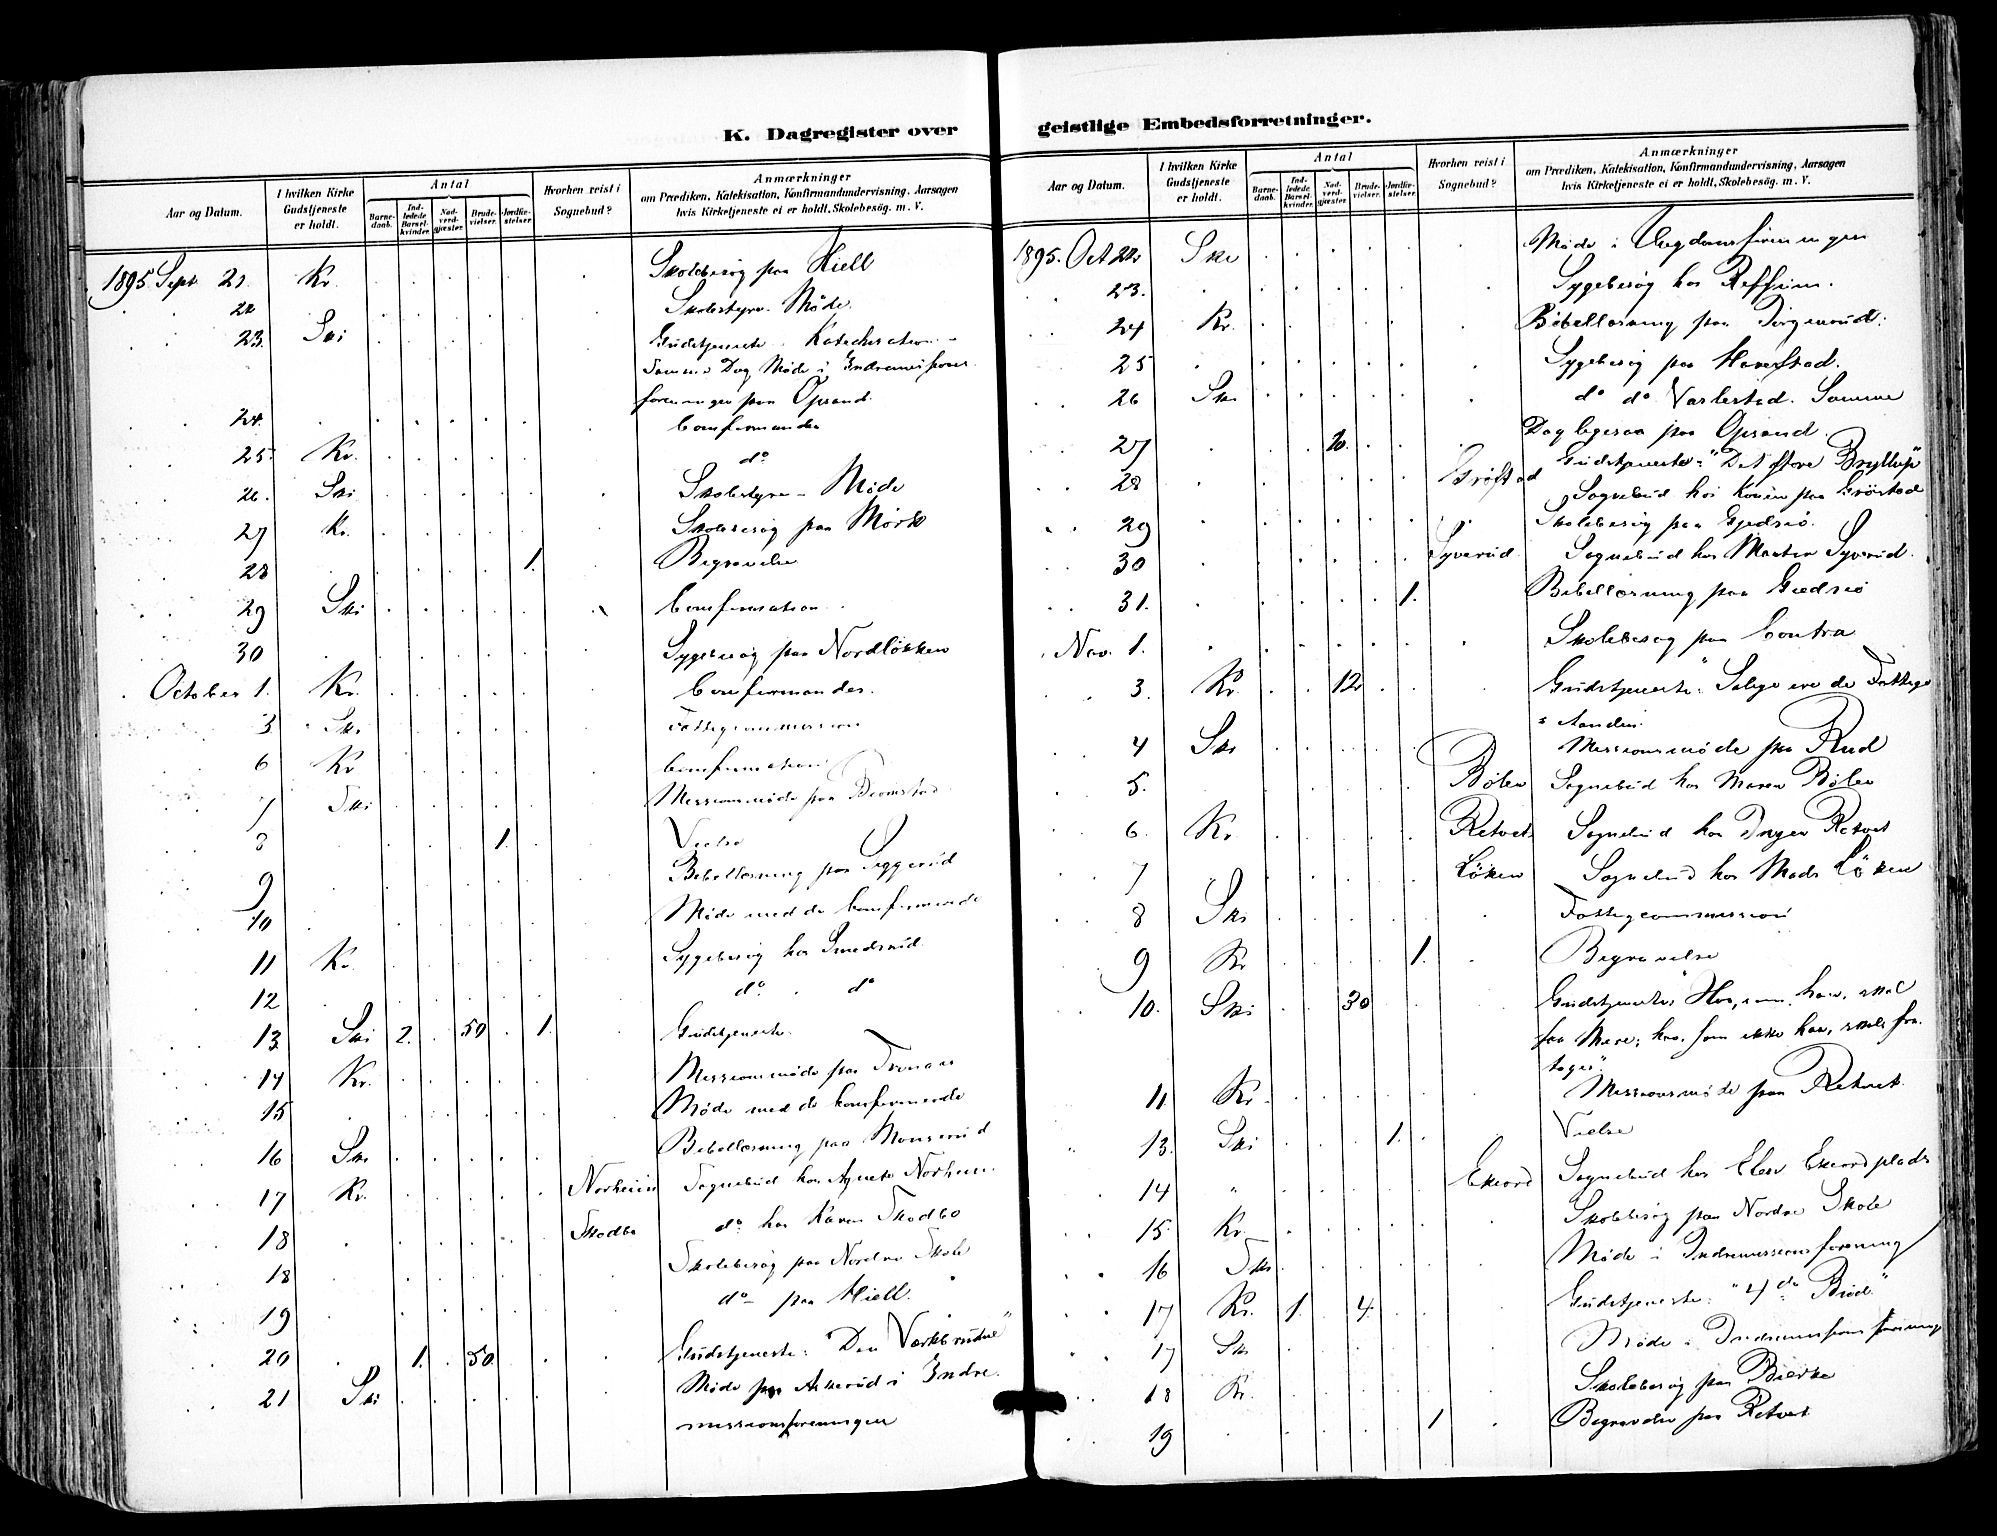 K. Dagregister over
Aar og Datum.
I hvilken Kirke Gudstjeneste er holdt.
Antal
Barne-daab.
Ind-ledede Barsel-kvinder.
Nad-verd-gjæster.
Brude-vielser.
Jordfæ-stelser.
Hvorhen reist i Sognebud?
Anmærkninger
om Prædiken, Katekisation, Konfirmandundervisning, Aarsagen
hvis Kirketjeneste ei er holdt, Skolebesøg. m. V.
1895 Sept. 21. Kr. Skolebesøg paa Kiell
22 Skolestyre. Møde.
23. Ski Gudstjeneste. Katechisation
Samme Dag Møde i Indremissions
foreningen paa Opsand.
24. Confirmander
25. Kr. do
26. Ski Skolestyre - Møde
27 Kr. Skolebesøg paa Mørk
28 1. Begravelse
29 Ski Confirmation
30 Sygebesøg paa Nordløkken
October 1. Kr. Confirmander.
3 Ski Fattigcommission
6 Kr Confirmation
7 Ski Missionsmøde paa
8 1. Vielse
9 Bibellæsning paa Siggerud
10 Møde med de Confirmerede
11 Kr. Sygebesøg hos Smedsrud
12 do. do
13. Ski 2. 50 1. Gudstjeneste.
14 Kr. Missionsmøde paa
15 Møde med de konfirmerede
16 Ski Bibellæsning paa Monsrud
17 Kr. Norheim Sognebud hos Agnete Norheim
18 Skodbo do hos Karen Skodbo
18 Skolebesøg paa Nordre Skole
19 do - paa Kiell.
20 1. 50. Gudstjeneste: Den Værkbrudne"
21 Ski Møde paa Askerud i Indre
missionsforeningen
geistlige Embedsforretninger.
Aar og Datum.
I hvilken Kirke Gudstjeneste er holdt.
Antal
Barne-daab.
Ind-ledede Barsel-kvinder.
Nad-verd-gjæster.
Brude-vielser.
Jordfæ-stelser.
Hvorhen reist i Sognebud?
Anmærkninger
om Prædiken, Katekisation, Konfirmandundervisning, Aarsagen
hvis Kirketjeneste ei er holdt, Skolebesøg. m. V.
1895. Oct 22. Ski Møde i Ungdomsforeningen
23. Sygebesøg hos
24 Kr. Bibellæsning paa
25 Sygebesøg paa Haugstad.
26 Ski do do Samme
Dag ligesaa paa Opsand.
27 20. Gudstjeneste: "Det store Bryllup"
28 Grøstad Sognebud hos Konen paa Grøstad
29 Skolebesøg paa Gjedsiø.
30 Syverud Sognebud hos Syverud.
31. 1. Bibellæsning paa Giedsiø
Nov. 1. Skolebesøg paa Contra
3. Kr. 12 Gudstjeneste: "Salige ere de Fattige
i Aanden.
4 Ski Missionsmøde paa Rud
5. Bølen Sognebud hos Maren Bølen
6. Kr. Retvet Sognebud hos Retvet
7 Løken Sognebud hos Mads Løken
8 Ski Fattigcommission
9 Kr 1. Begravelse
10. Ski 30 Gudstjeneste: Hvo, som har, skal
faa Mere; hvo, som ikke har, skal fra
tages".
11 Kr. Missionsmøde paa Retvet.
13. Ski 1. Vielse
14 " Ekeord Sognebud hos Elen Ekeordplads
15. Kr. Skolebesøg paa Nordre Skole
16 Ski Møde i Indremissionsforening
17 Kr. 1. 4. Gudstjeneste: "4de Brød."
17 Ski Møde i Indremissionsforening
18 Kr. Skolebesøg paa Bierke
19 1 Begravelse paa Retvet